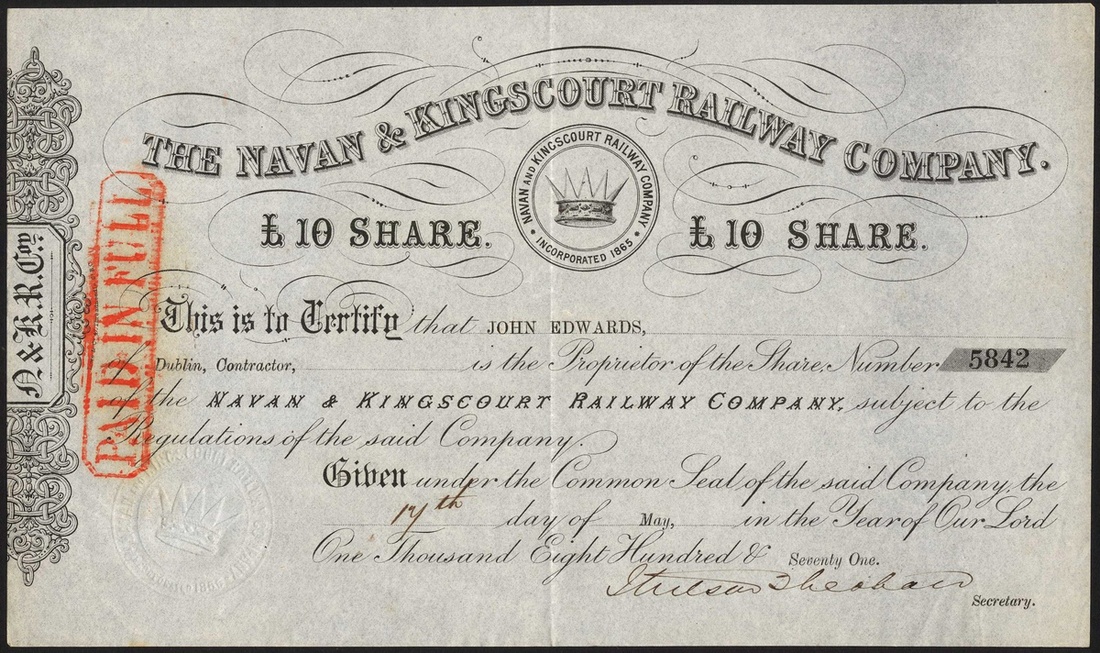 THE NAVAN & KINGSCOURT RAILWAY COMPANY.
NAVAN AND KINGSCOURT RAILWAY COMPANY
INCORPORATED 1865
£10 SHARE. £10 SHARE.
N.&K.R.Coy.
PAID IN FULL
This is to Certify that JOHN EDWARDS,
of Dublin, Contractor, is the Proprietor of the Share, Number 5842
of the NAVAN & KINGSCOURT RAILWAY COMPANY, subject to the
Regulations of the said Company.
Given under the Common Seal of the said Company, the
17th day of May, in the Year of Our Lord
One Thousand Eight Hundred & Seventy One.
Secretary.